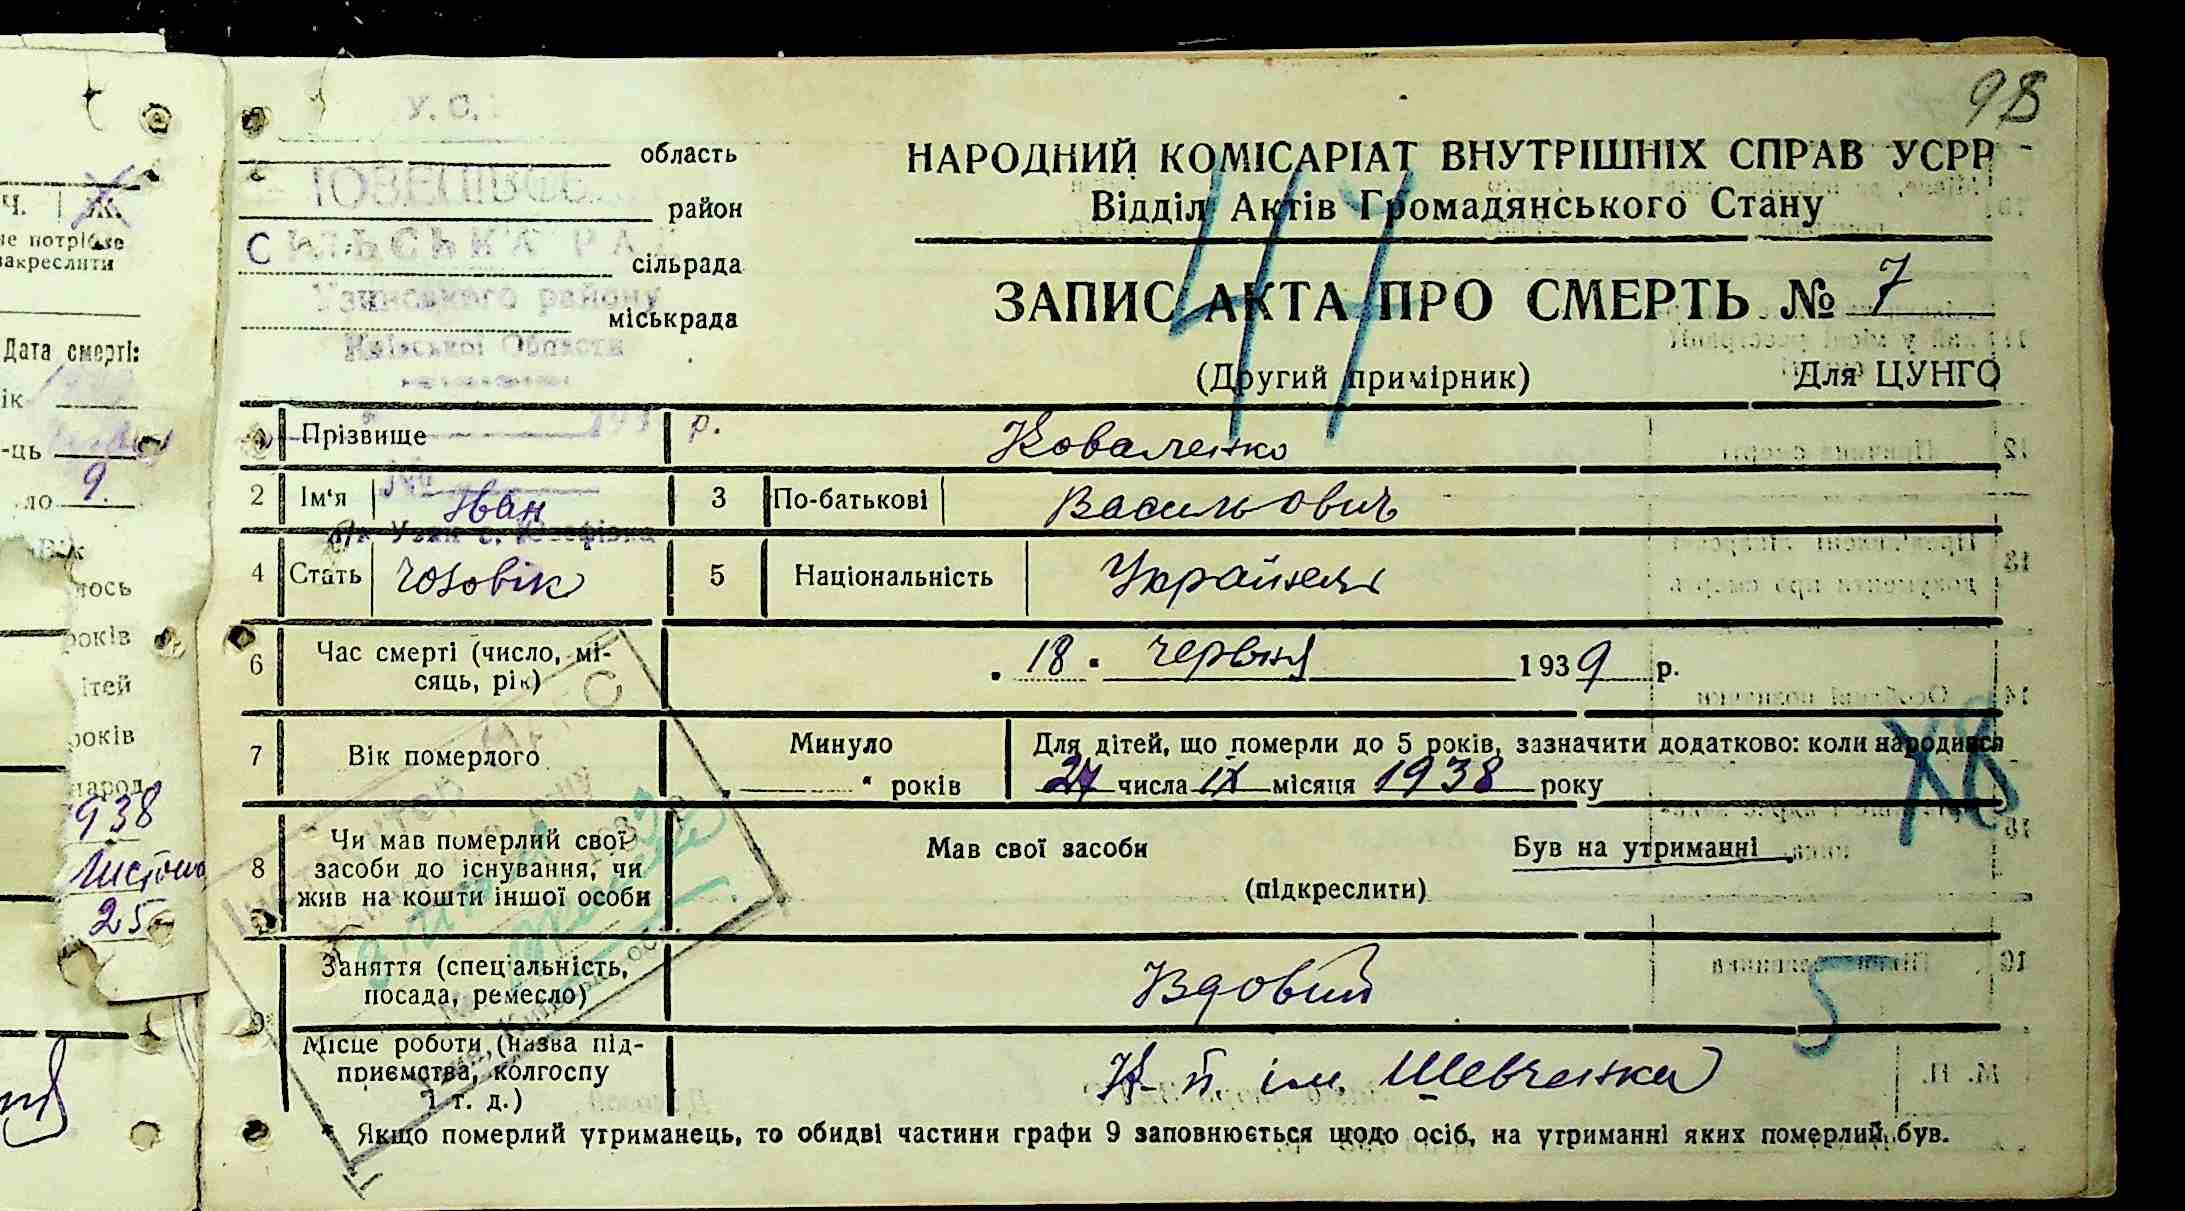 98
У. С.
область
НАРОДНИЙ КОМІСАРІАТ ВНУТРІШНІХ СПРАВ УСРР
район
Відділ Актів Громадянського Стану
СІЛЬСЬКА РАДА
сільрада
Узинського району
міськрада
Київської Области
ЗАПИС АКТА ПРО СМЕРТЬ № 7
44
(Другий примірник) Для ЦУНГО
Прізвище Коваленко
193 р.
№
2 Ім'я Іван 3 По-батькові Васильович
4 Стать чоловік 5 Національність Українець
6 Час смерті (число, мі-
сяць, рік)
18 червня 1939 р.
7 Вік померлого Минуло
років
Для дітей, що померли до 5 років, зазначити додатково: коли народився
27 числа IX місяця 1938 року
8 Чи мав померлий свої
засоби до існування, чи
жив на кошти іншої особи
Мав свої засоби Був на утриманні
(підкреслити)
9 Заняття (спеціальність,
посада, ремесло)
Місце роботи (назва під-
приємства, колгоспу
і т. д.)
5
К-п. ім. Шевченка
* Якщо померлий утриманець, то обидві частини графи 9 заповнюється щодо осіб, на утриманні яких померлий був.
Ч. Ж.
не потрібне
закреслити
Дата смерті:
ік
-ць
ло 9.
Вік
лось
років
ітей
років
народ.
938
25